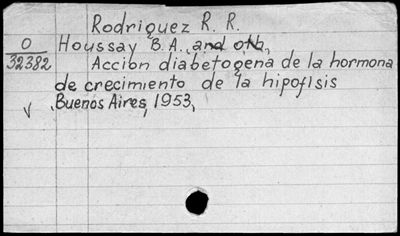 Rodriguez R. R.
O Houssay B. A. and oth,
32382 Acción diabetogena de la hormona
de crecimiento de la hipofisis
Buenos Aires, 1953,